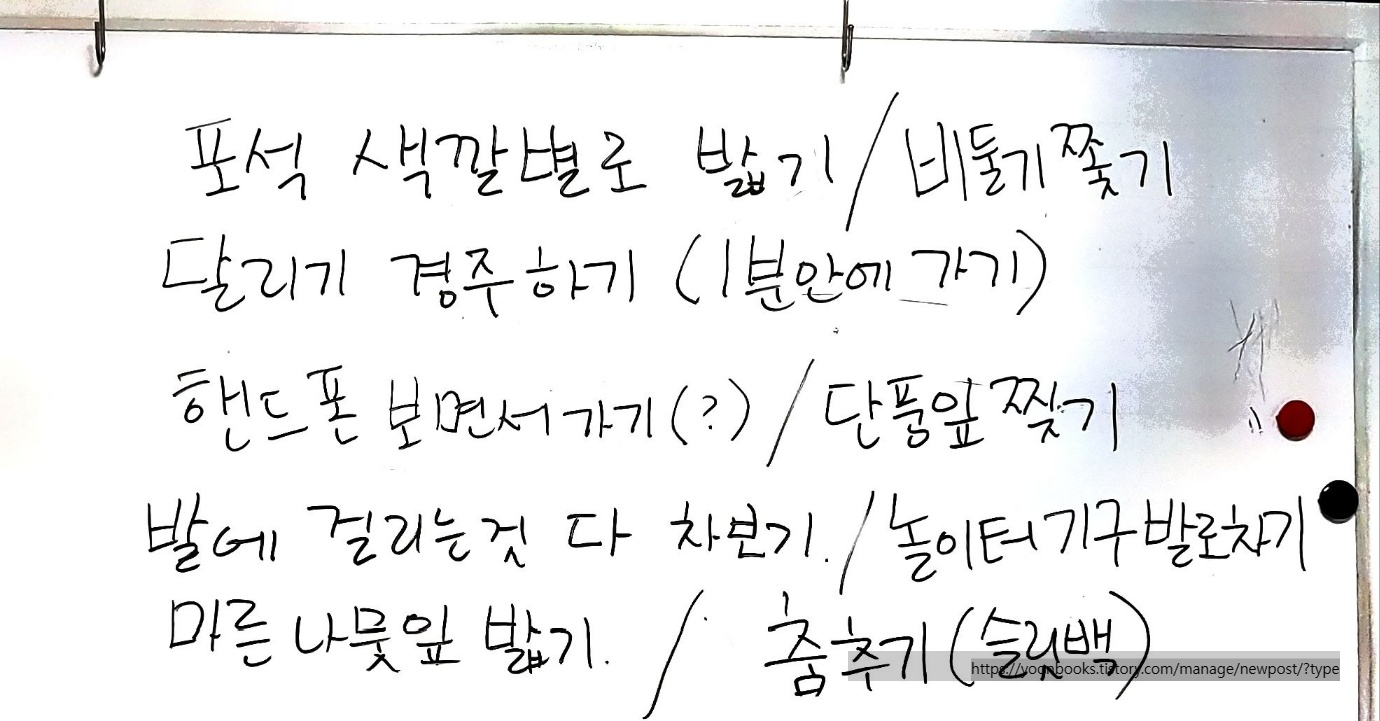 포석 색깔별로 밟기 / 비둘기쫓기
달리기 경주하기 (1분안에 가기)
핸드폰 보면서가기(?) / 단풍잎 찢기
발에 걸리는것 다 차보기. / 놀이터기구발로차기
마른 나뭇잎 밟기. / 춤추기(슬릿백)
https://yoonbooks.tistory.com/manage/newpost/?type